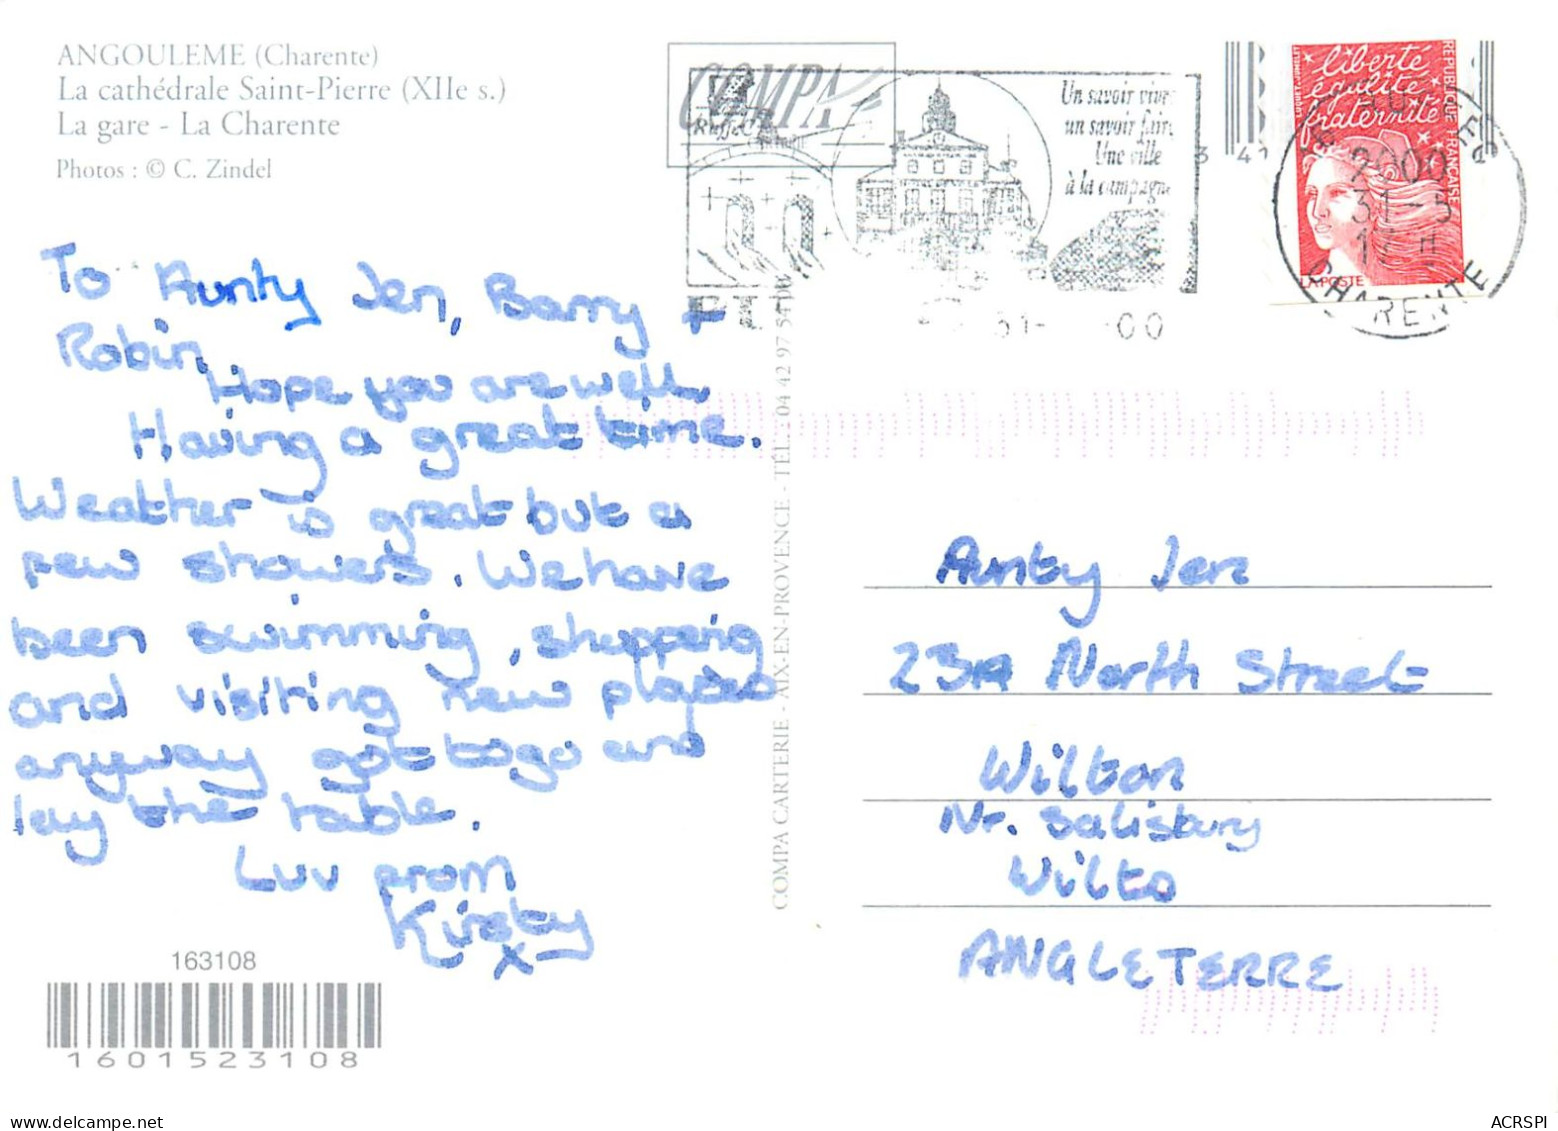 ANGOULEME (Charente)
La cathédrale Saint-Pierre (XIIe s.)
La gare - La Charente
Photos : © C. Zindel
COMPA
Ruffec
Un savoir vivre
un savoir faire
Une ville
à la campagne
31- 00
3 41
liberté
égalité
fraternité
RÉPUBLIQUE FRANÇAISE
LA POSTE
2000
31-5
CHARENTE
To Aunty Jen, Barry +
Robin,
Hope you are well.
Having a great time.
Weather is great but a
few showers. We have
been swimming, shopping
and visiting new places
anyway got to go and
lay the table.
Luv from
Kirsty
x
COMPA CARTERIE - AIX-EN-PROVENCE - TÉL. : 04 42 97 51 00
Aunty Jen
23A North Street
Wilton
Nr. Salisbury
Wilts
ANGLETERRE
163108
1601523108
www.delcampe.net
ACRSPI